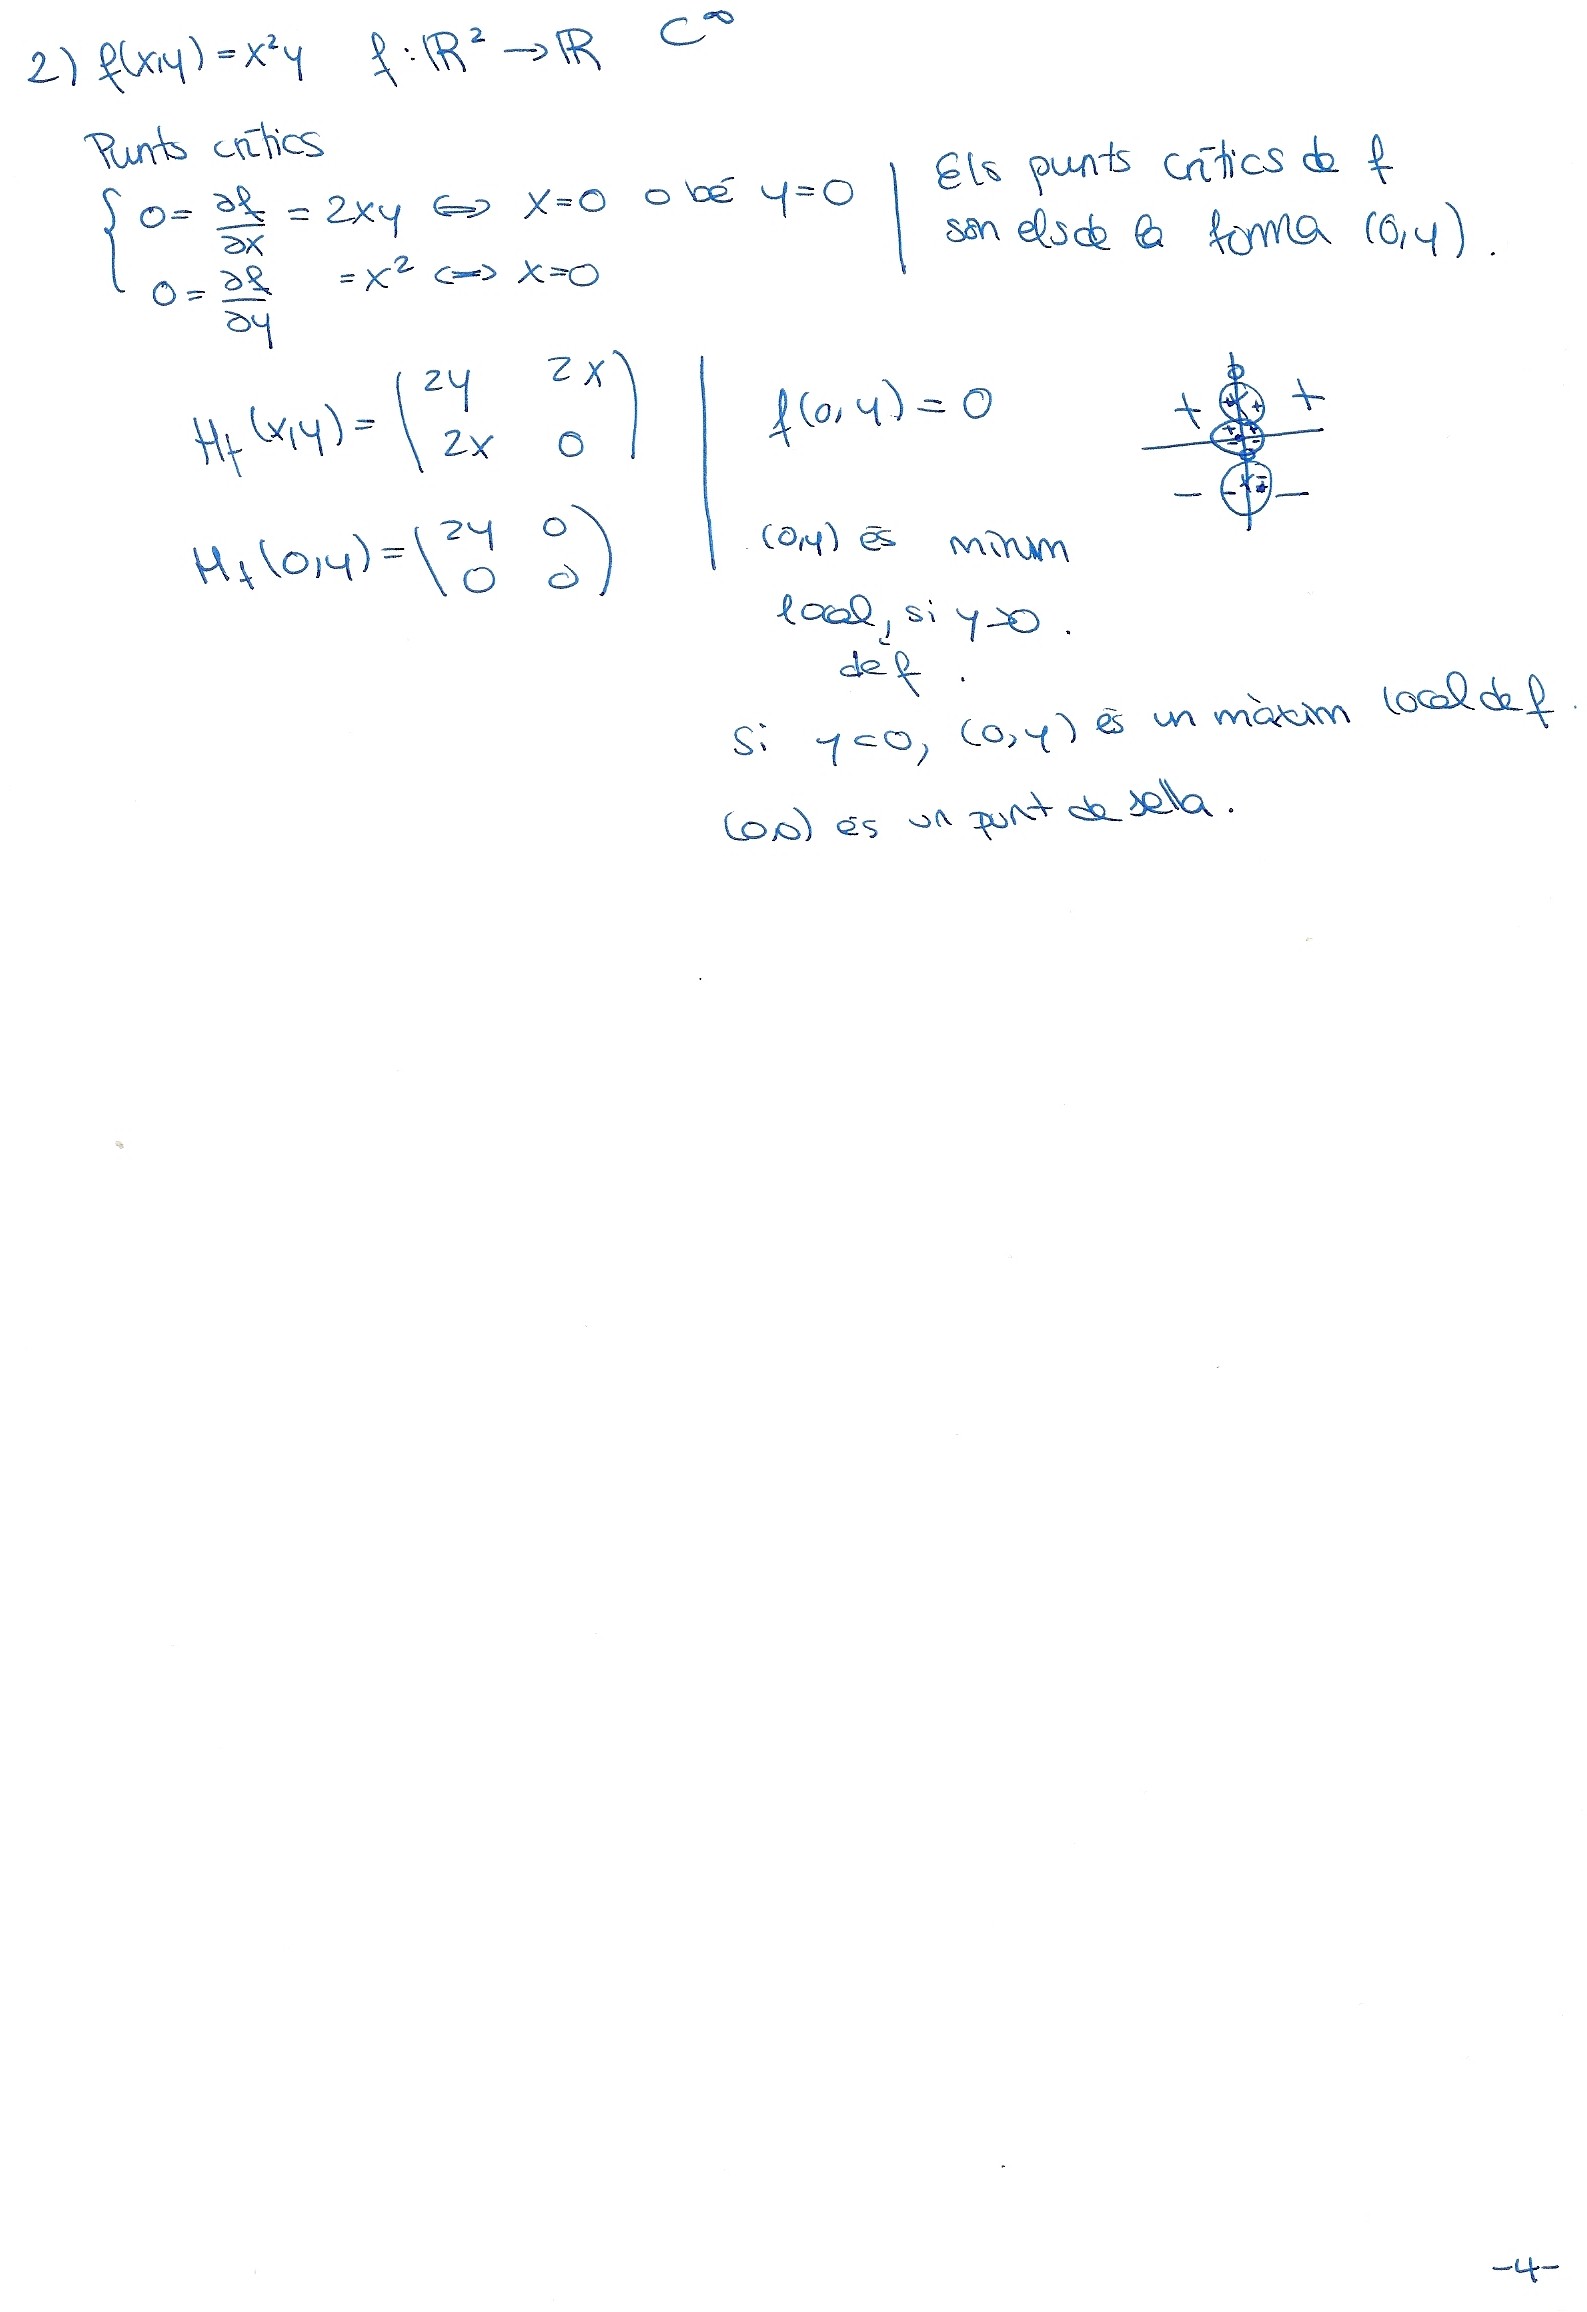 2) f(x,y) = x²y f: ℝ² → ℝ C^∞
Punts crítics
{ 0 = ∂f/∂x = 2xy ⟺ x=0 o bé y=0
0 = ∂f/∂y = x² ⟺ x=0
| Els punts crítics de f
son els de la forma (0,y).
Hf (x,y) = ( 2y 2x
2x 0 )
Hf (0,y) = ( 2y 0
0 0 )
| f(0,y) = 0
+ +
- -
(0,y) és mínim
local, si y>0.
de f.
Si y<0, (0,y) és un màxim local de f.
(0,0) és un punt de sella.
-4-